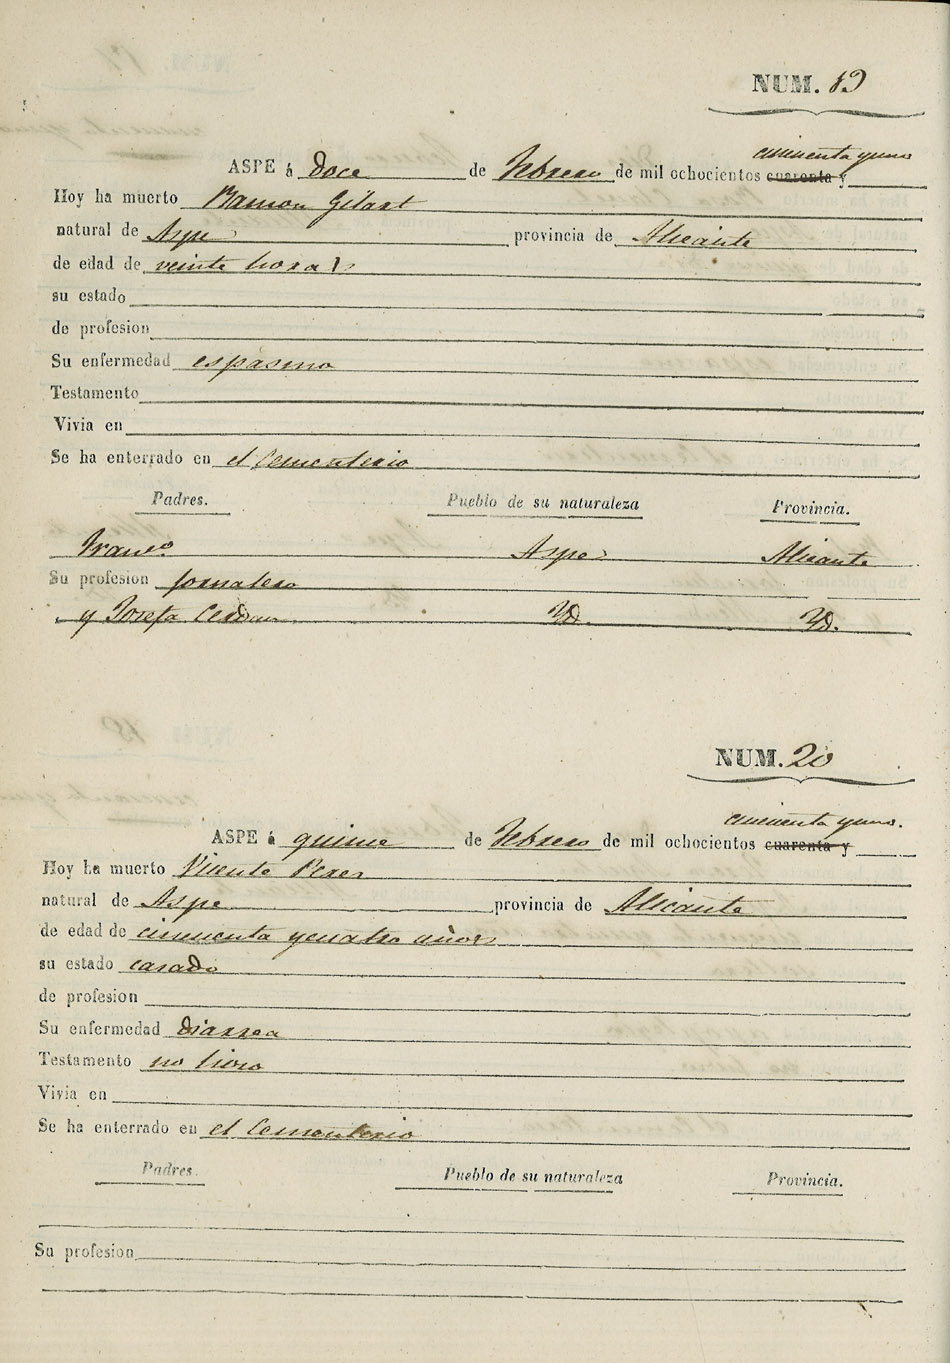 NUM. 19
cincuenta y uno
ASPE á doce de Febrero de mil ochocientos cuarenta y
Hoy ha muerto Ramon Gilart
natural de Aspe provincia de Alicante
de edad de veinte horas
su estado
de profesion
Su enfermedad espasmo
Testamento
Vivia en
Se ha enterrado en el Cementerio
Padres. Pueblo de su naturaleza Provincia.
Franco. Aspe Alicante
Su profesion Jornalero
y Josefa Cerdan Yd. Yd.
NUM. 20
cincuenta y uno.
ASPE á quince de Febrero de mil ochocientos cuarenta y
Hoy ha muerto Vicente Peres
natural de Aspe provincia de Alicante
de edad de cincuenta y cuatro años
su estado casado
de profesion
Su enfermedad diarrea
Testamento no hizo
Vivia en
Se ha enterrado en el Cementerio
Padres. Pueblo de su naturaleza Provincia.
Su profesion